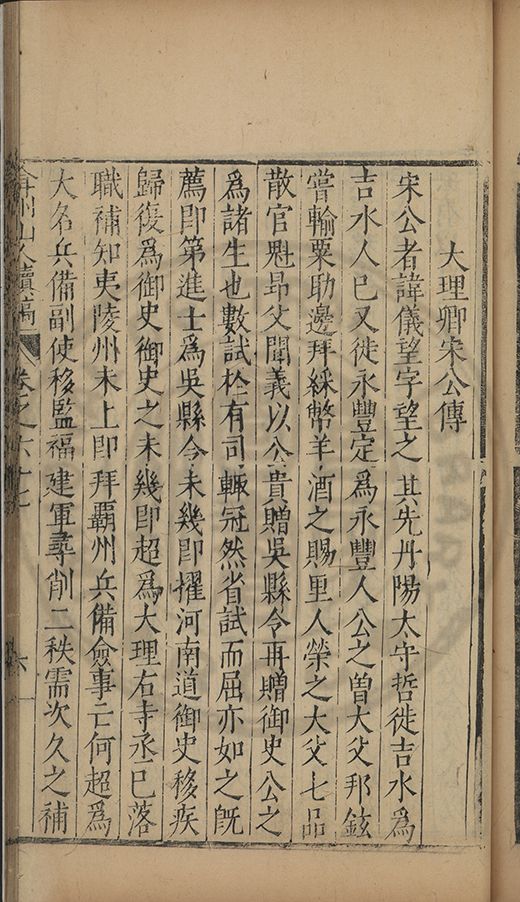 大理卿宋公傳
宋公者諱儀望字望之其先丹陽太守哲徙吉水爲
吉水人已又徙永豐定爲永豐人公之曾大父邦鉉
嘗輸粟助邊拜綵幣羊酒之賜里人榮之大父七品
散官魁昻父聞義以公貴贈吳縣令再贈御史公之
爲諸生也數試於有司輒冠然省試而屈亦如之旣
薦卽第進士爲吳縣令未幾卽擢河南道御史移疾
歸復爲御史御史之未幾卽超爲大理右寺丞已落
職補知夷陵州未上卽拜霸州兵備僉事亡何超爲
大名兵備副使移監福建軍尋削二秩需次久之補
弇州山人續稿 卷之六十七 六